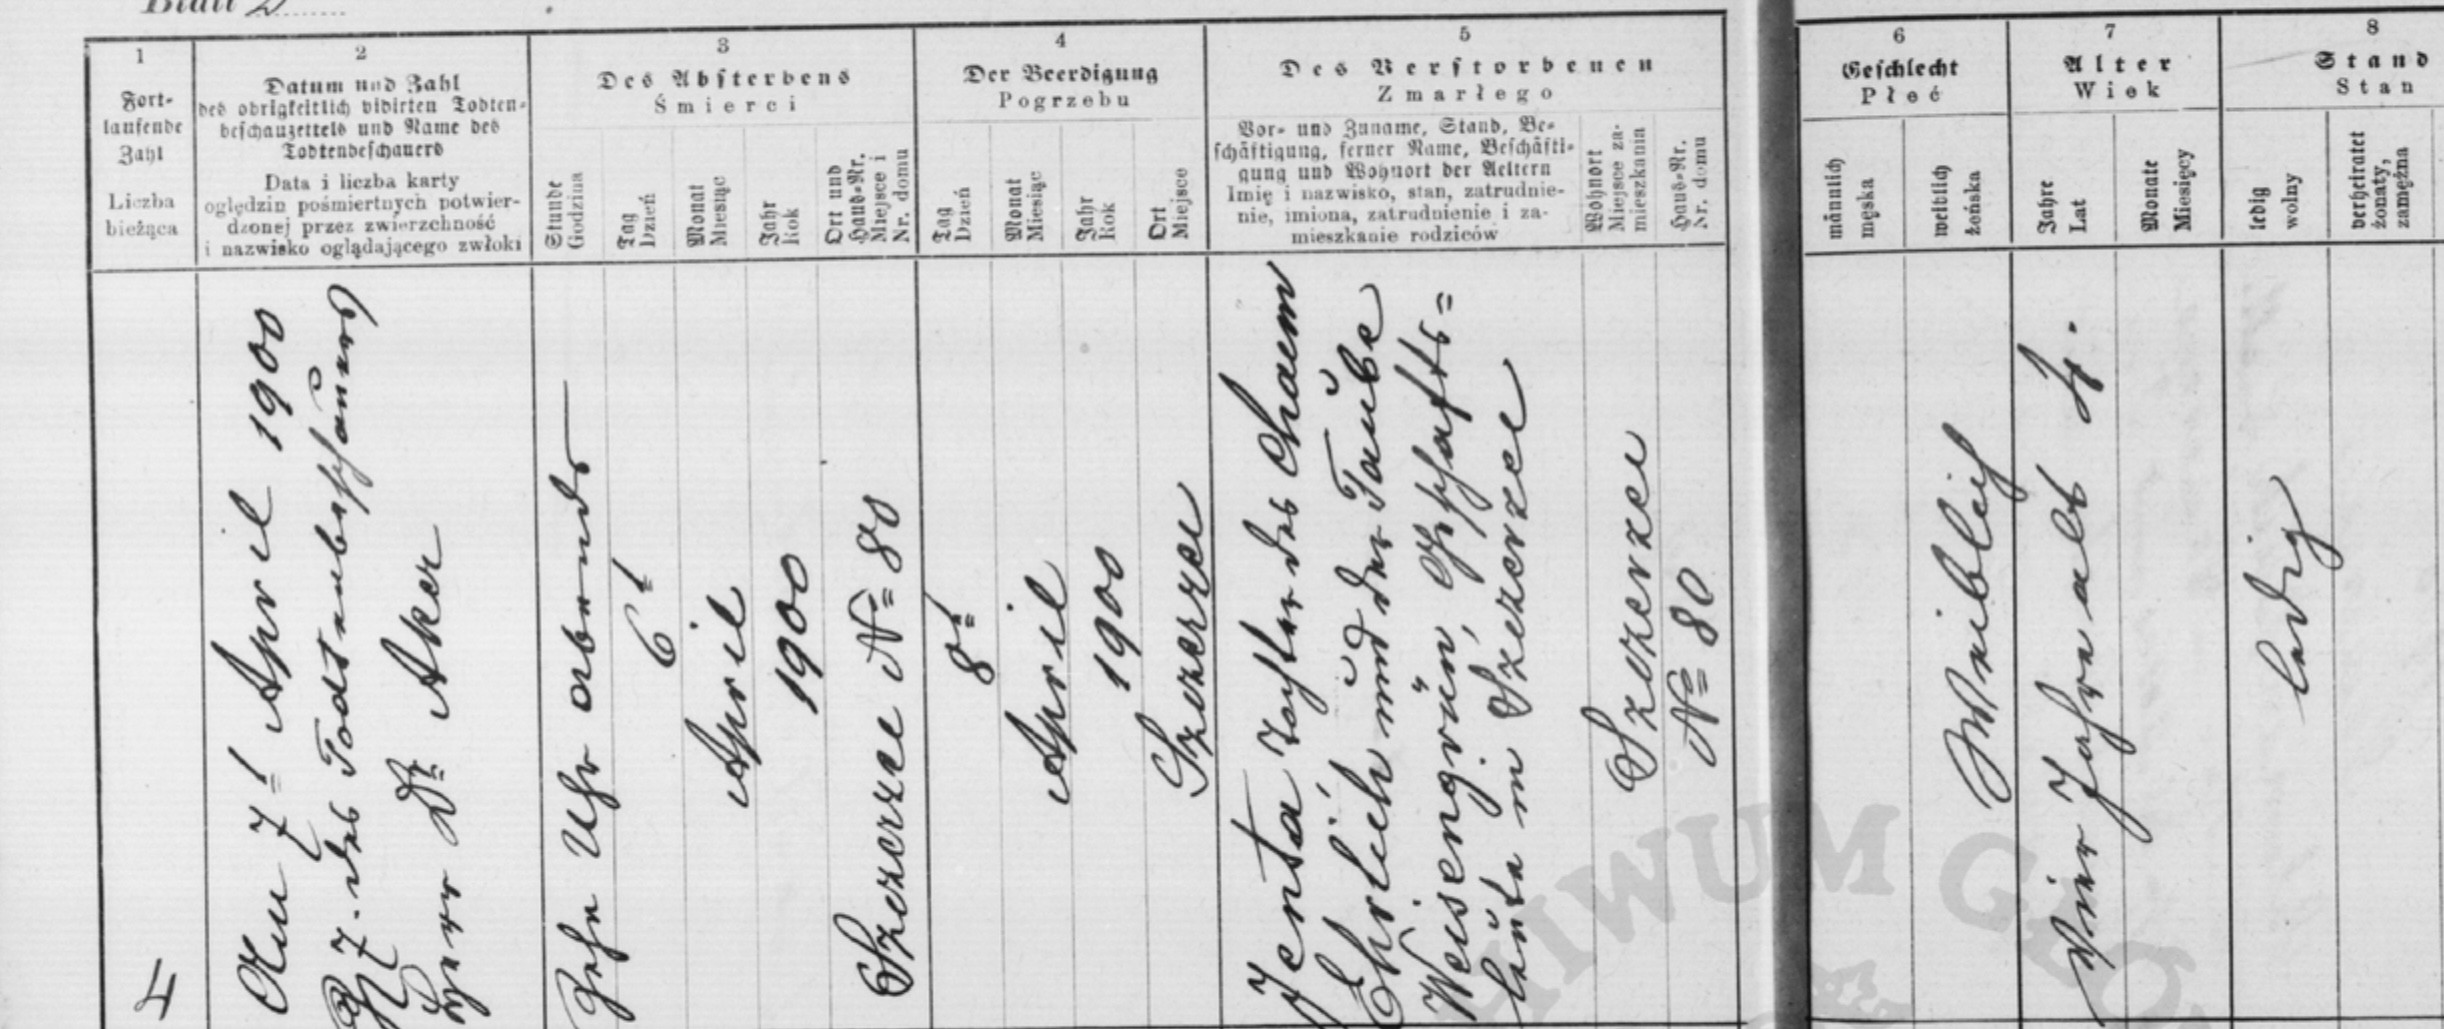 Blatt 2
1
Fort-
laufende
Zahl
Liczba
bieżąca
2
Datum und Zahl
des obrigkeitlich vidirten Todten-
beschauzettels und Name des
Todtenbeschauers
Data i liczba karty
oględzin pośmiertnych potwier-
dzonej przez zwierzchność
i nazwisko oglądającego zwłoki
3
Des Absterbens
Śmierci
Stunde
Godzina
Tag
Dzień
Monat
Miesiąc
Jahr
Rok
Ort und
Haus-Nr.
Miejsce i
Nr. domu
4
Der Beerdigung
Pogrzebu
Tag
Dzień
Monat
Miesiąc
Jahr
Rok
Ort
Miejsce
5
Des Verstorbenen
Zmarłego
Vor- und Zuname, Stand, Be-
schäftigung, ferner Name, Beschäfti-
gung und Wohnort der Aeltern
Imię i nazwisko, stan, zatrudnie-
nie, imiona, zatrudnienie i za-
mieszkanie rodziców
Wohnort
Miejsce za-
mieszkania
Haus-Nr.
Nr. domu
6
Geschlecht
Płeć
männlich
męska
weiblich
żeńska
7
Alter
Wiek
Jahre
Lat
Monate
Miesięcy
8
Stand
Stan
ledig
wolny
verheiratet
żonaty,
zamężna
4
Am 7t April 1900
7. des Todtenbeschauers
Herr Dr Aker
Zehn Uhr abends
6t
April
1900
Szczerzec No 80
8t
April
1900
Szczerzec
Jenta Tochter des Chaem
Ehrlich und der Taube
Weisengrün, Geschäfts=
leute in Szczerzec
Szczerzec
No 80
Weiblich
Vier Jahre alt 4.
ledig